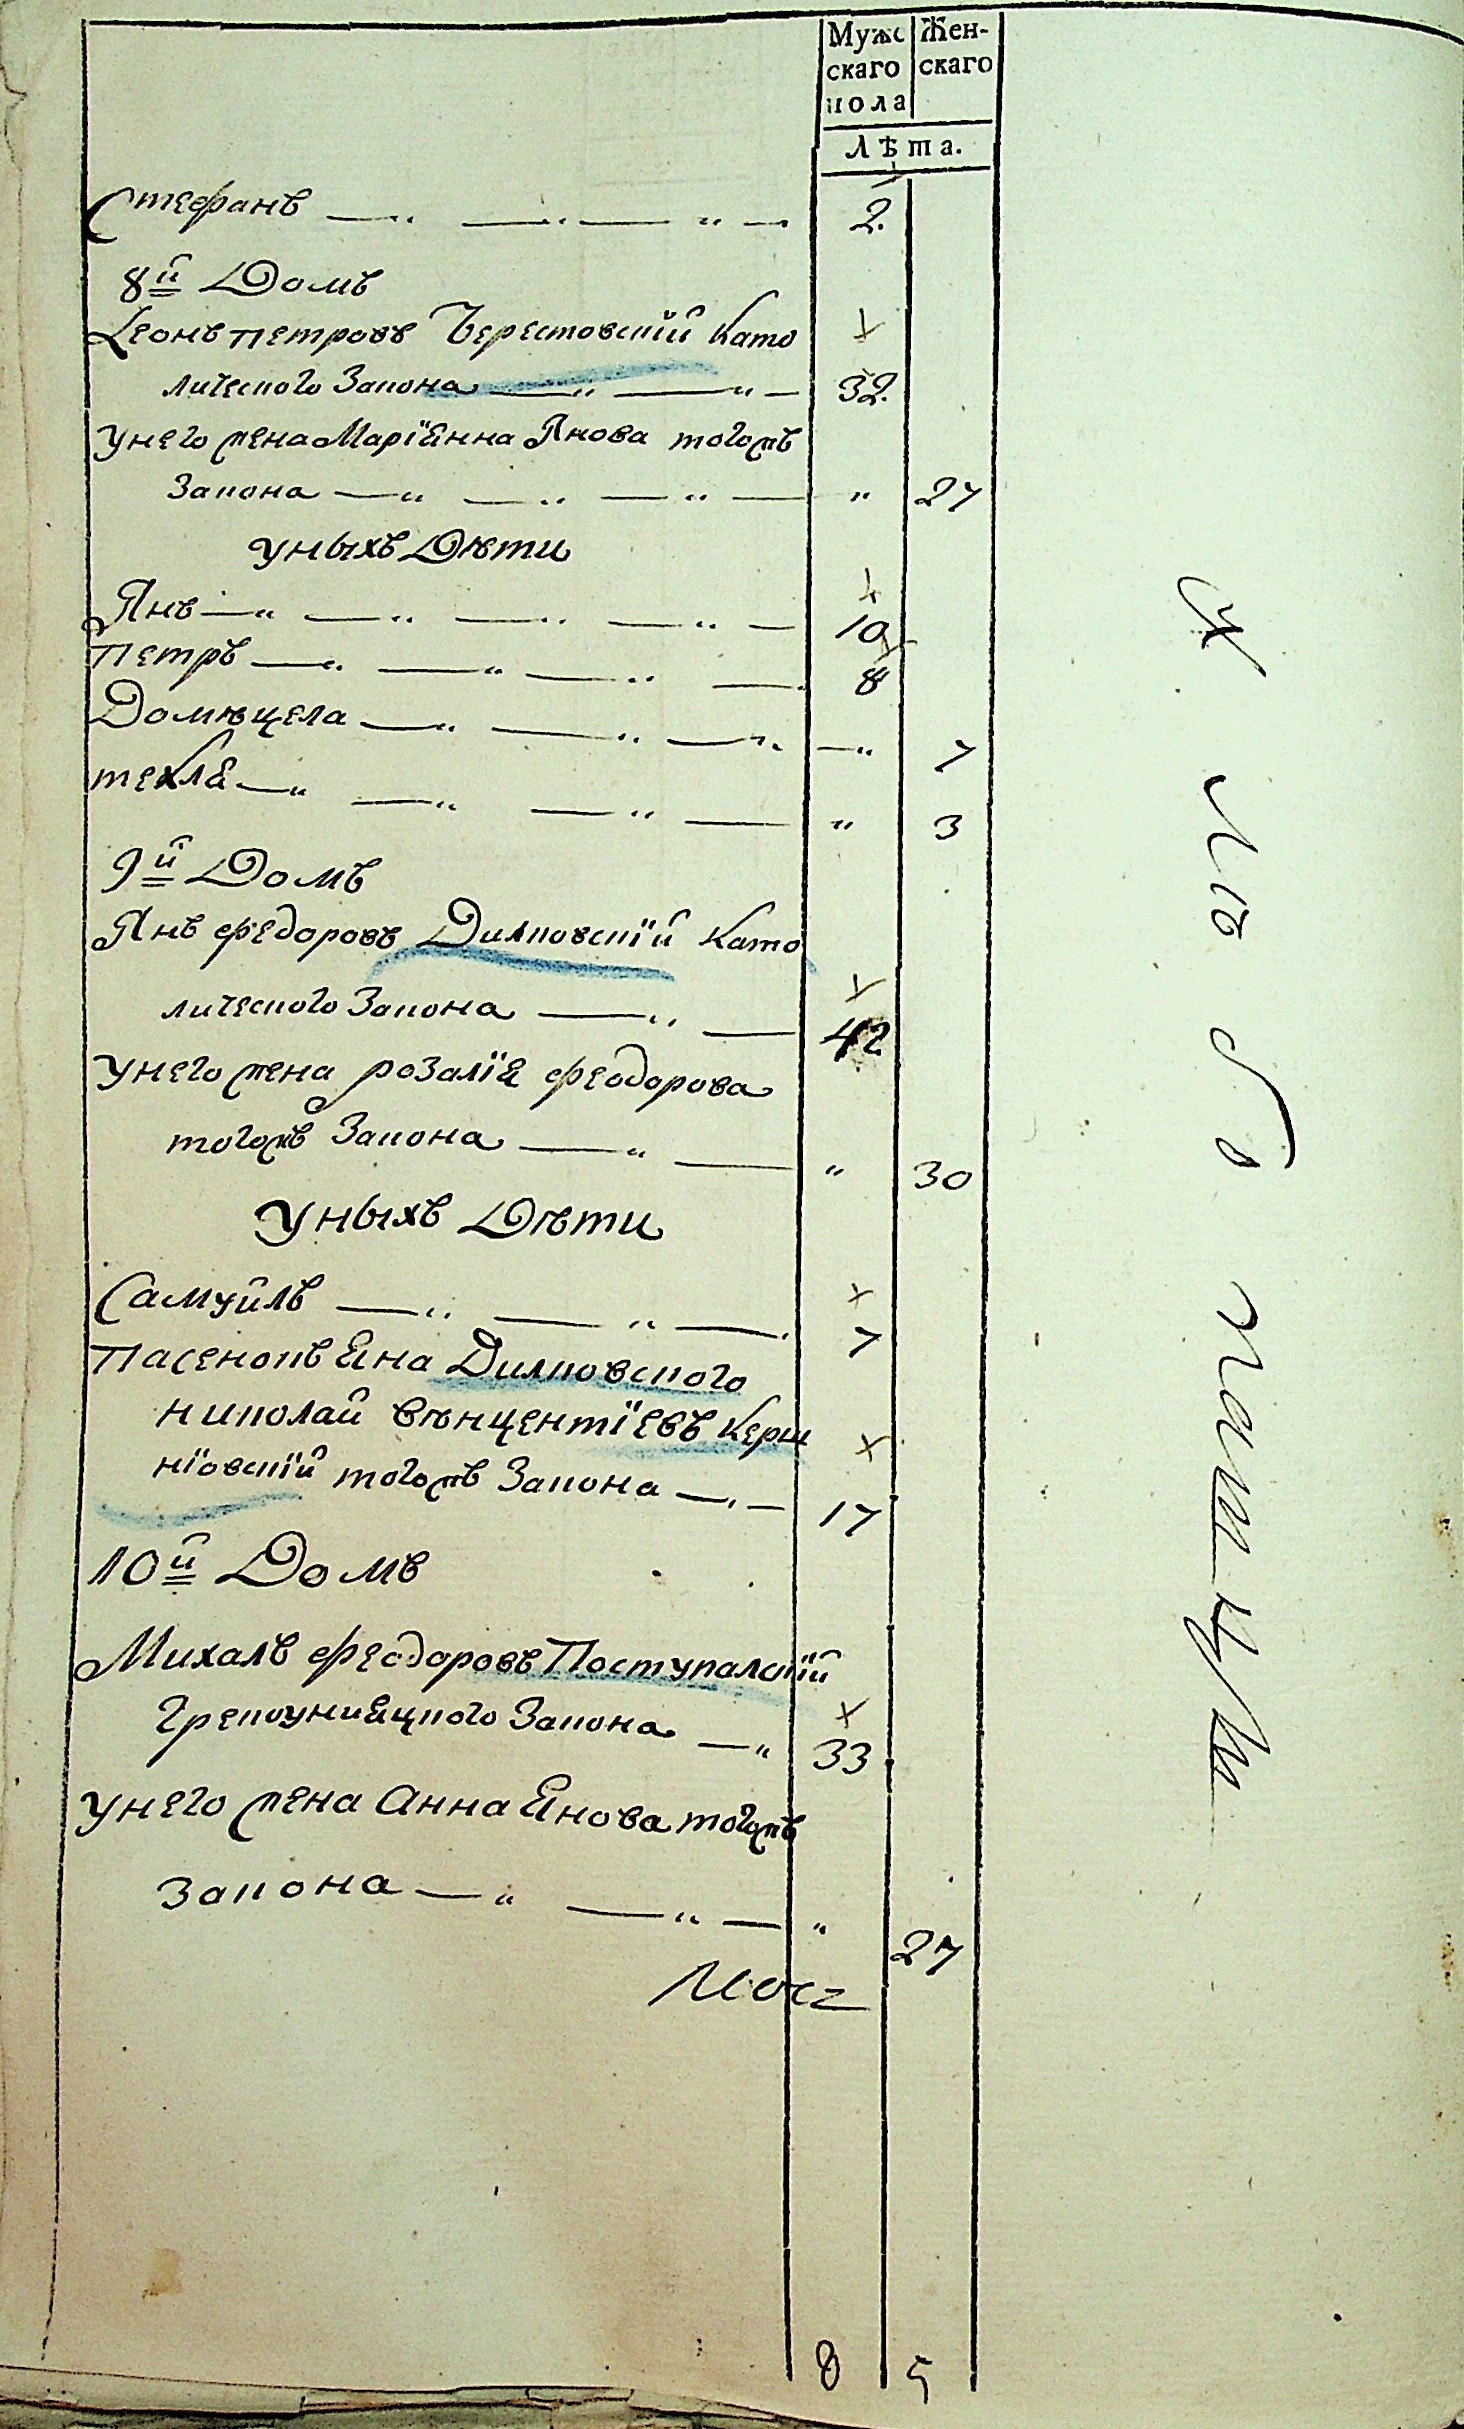 Мужс Жен-
скаго скаго
пола
Лѣта.
Стефанъ — „ — „ — „ — 2.
8й Домъ
Леонъ Петровъ Берестовскiй Като
лического Закона — „ — „ — 32.
унего жена Марiянна Янова тогожъ
Закона — „ — „ — „ — „ 27
уныхъ Дѣти
Янъ — „ — „ — „ — „ — 10
Петръ — „ — „ — „ — 8
Домѣцела — „ — „ — „ — „ 7
текля — „ — „ — „ — „ 3
9й Домъ
Янъ Федоровъ Дилковскiй Като
лического Закона — „ — 42
унего жена розалiя феодорова
тогожъ Закона — „ — „ 30
уныхъ Дѣти
Самуйлъ — „ — „ — 7
Пасенокъ Яна Дилковского
николай вѣнцентiевъ Керш
нiовскiй тогожъ Закона — „ — 17
10й Домъ
Михалъ феодоровъ Поступалскiй
Грекоунияцкого Закона — „ 33
унего жена Анна Янова тогожъ
Закона — „ — „ — „ 27
8 5